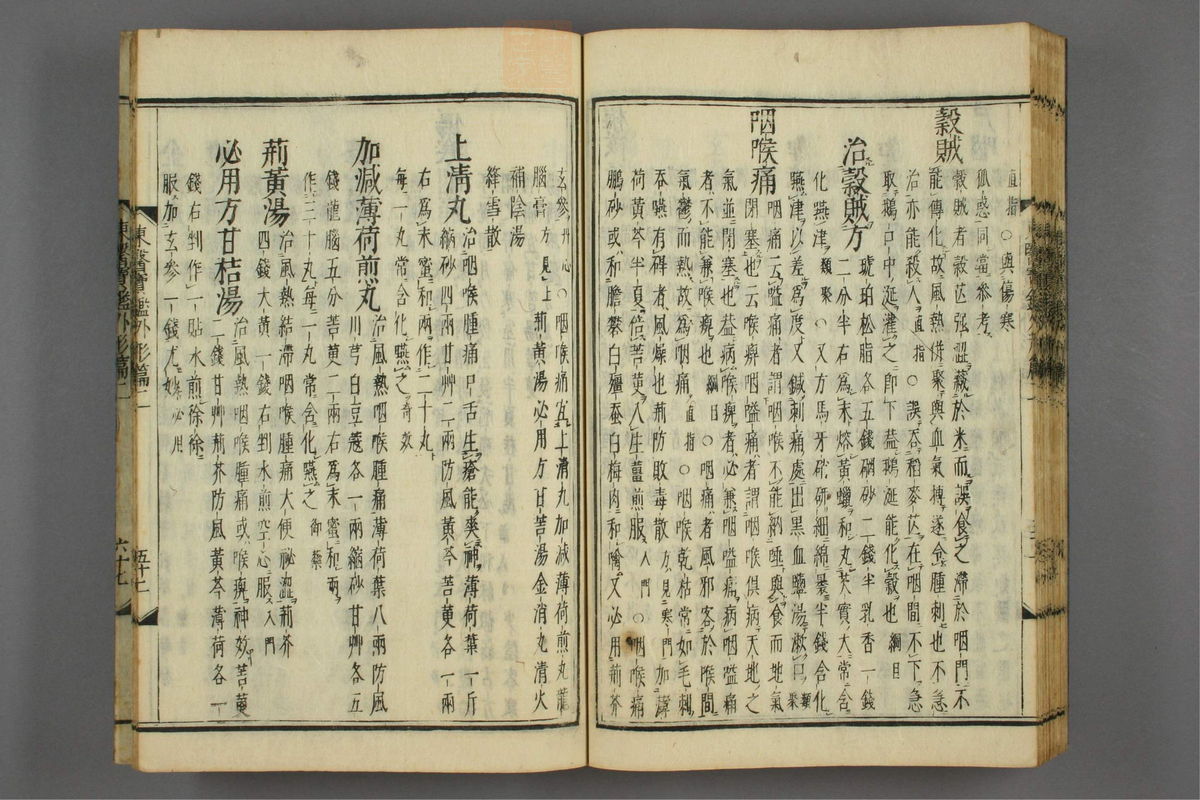 直指○與傷寒
狐惑同當參考
穀賊
穀賊者穀芒强澁藏於米而誤食之滯於咽門不
能傳化故風熱倂聚與血氣搏遂令腫刺也不急
治亦能殺人直指○誤吞稻麥芒在咽間不下急
取鵝口中涎灌之卽下葢鵝涎能化穀也綱目
治穀賊方
琥珀松脂各五錢硼砂二錢半乳香一錢
二分半右爲末熔黃蠟和丸芡實大常含
化嚥津類聚○又方馬牙硝硏細綿裹半錢含化
嚥津以差爲度又鍼刺痛處出黑血鹽湯漱口類聚
咽喉痛
咽痛云嗌痛者謂咽喉不能納唾與食而地氣
閉塞也云喉痺咽嗌痛者謂咽喉俱病天地之
氣並閉塞也葢病喉痺者必兼咽嗌痛病咽嗌痛
者不能兼喉痺也綱目○咽痛者風邪客於喉間
氣鬱而熱故爲咽痛直指○咽喉乾枯常如毛刺
吞嚥有碍者風燥也荊防敗毒散方見寒門加薄
荷黃芩半夏倍苦莄入生薑煎服入門○咽喉痛
鵬砂或和膽礬白殭蚕白梅肉和噙又必用荊芥
玄參升心○咽喉痛宜上淸丸加減薄荷煎丸龍
腦膏方見上荊黃湯必用方甘苦湯金消丸淸火
補陰湯
絳雪散
上淸丸
治咽喉腫痛口舌生瘡能爽神薄荷葉一斤
縮砂四兩甘艸二兩防風黃芩苦莄各一兩
右爲末蜜和兩作二十丸
每一丸常含化嚥之奇效
加減薄荷煎丸
治風熱咽喉腫痛薄荷葉八兩防風
川芎白豆蔻各一兩縮砂甘艸各五
錢龍腦五分苦莄二兩右爲末蜜和兩
作二十丸每一丸常含化嚥之御藥
荊黃湯
治風熱結滯咽喉腫痛大便祕澁荊芥
四錢大黃一錢右剉水煎空心服入門
必用方甘桔湯
治風熱咽喉腫痛或喉痺神效苦莄
二錢甘艸荊芥防風黃芩薄荷各一
錢右剉作一貼水煎徐徐
服加玄參一錢尤妙必用
東醫寶鑑外形篇二
五十七